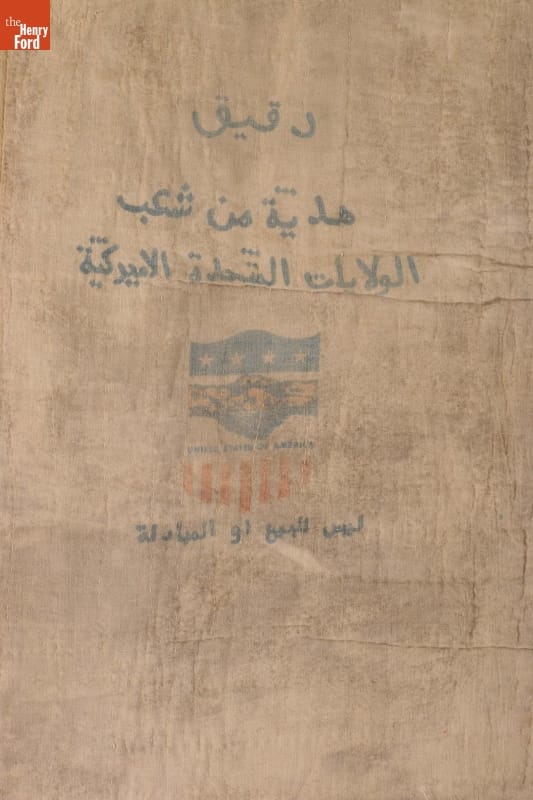 the
Henry
Ford
دقيق
هدية من شعب
الولايات المتحدة الاميركية
UNITED STATES OF AMERICA
ليس للبيع او المبادلة